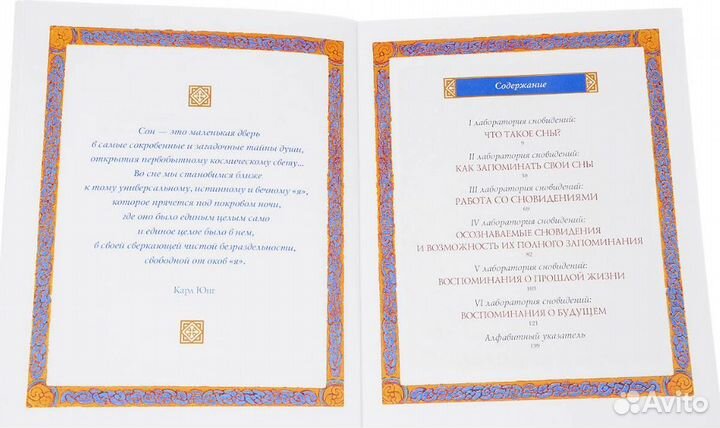 Сон — это маленькая дверь
в самые сокровенные и загадочные тайны души,
открытая первобытному космическому свету...
Во сне мы становимся ближе
к тому универсальному, истинному и вечному «я»,
которое прячется под покровом ночи,
где оно было единым целым само
и единое целое было в нем,
в своей сверкающей чистой безраздельности,
свободной от оков «я».
Карл Юнг
Содержание
I лаборатория сновидений:
ЧТО ТАКОЕ СНЫ?
9
II лаборатория сновидений:
КАК ЗАПОМИНАТЬ СВОИ СНЫ
III лаборатория сновидений:
РАБОТА СО СНОВИДЕНИЯМИ
60
IV лаборатория сновидений:
ОСОЗНАВАЕМЫЕ СНОВИДЕНИЯ
И ВОЗМОЖНОСТЬ ИХ ПОЛНОГО ЗАПОМИНАНИЯ
82
V лаборатория сновидений:
ВОСПОМИНАНИЯ О ПРОШЛОЙ ЖИЗНИ
103
VI лаборатория сновидений:
ВОСПОМИНАНИЯ О БУДУЩЕМ
121
Алфавитный указатель
Avito